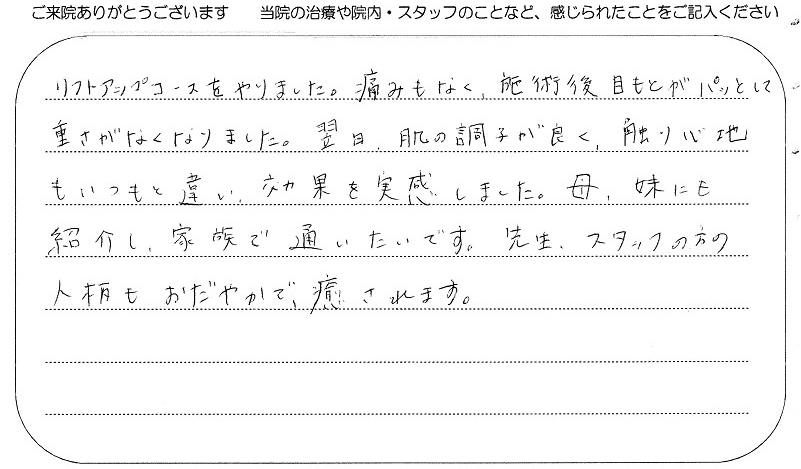 ご来院ありがとうございます　当院の治療や院内・スタッフのことなど、感じられたことをご記入ください
リフトアップコースをやりました。痛みもなく、施術後目もとがパッとして
重さがなくなりました。翌日、肌の調子が良く、触り心地
もいつもと違い、効果を実感しました。母、妹にも
紹介し、家族で通いたいです。先生、スタッフの方の
人柄もおだやかで、癒されます。